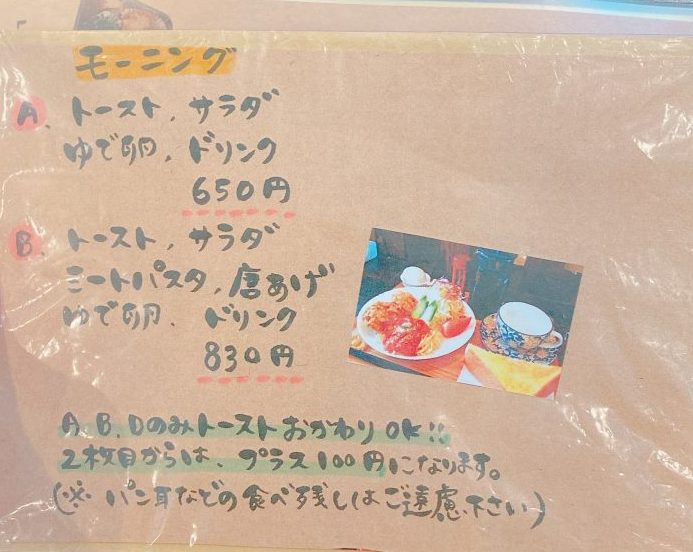 モーニング
A、トースト、サラダ
ゆで卵、ドリンク
650円
B、トースト、サラダ
ミートパスタ,唐あげ
ゆで卵、ドリンク
830円
A、B、Dのみトーストおかわり OK!!
2枚目からは、プラス100円になります。
(※ パン耳などの食べ残しはご遠慮下さい)